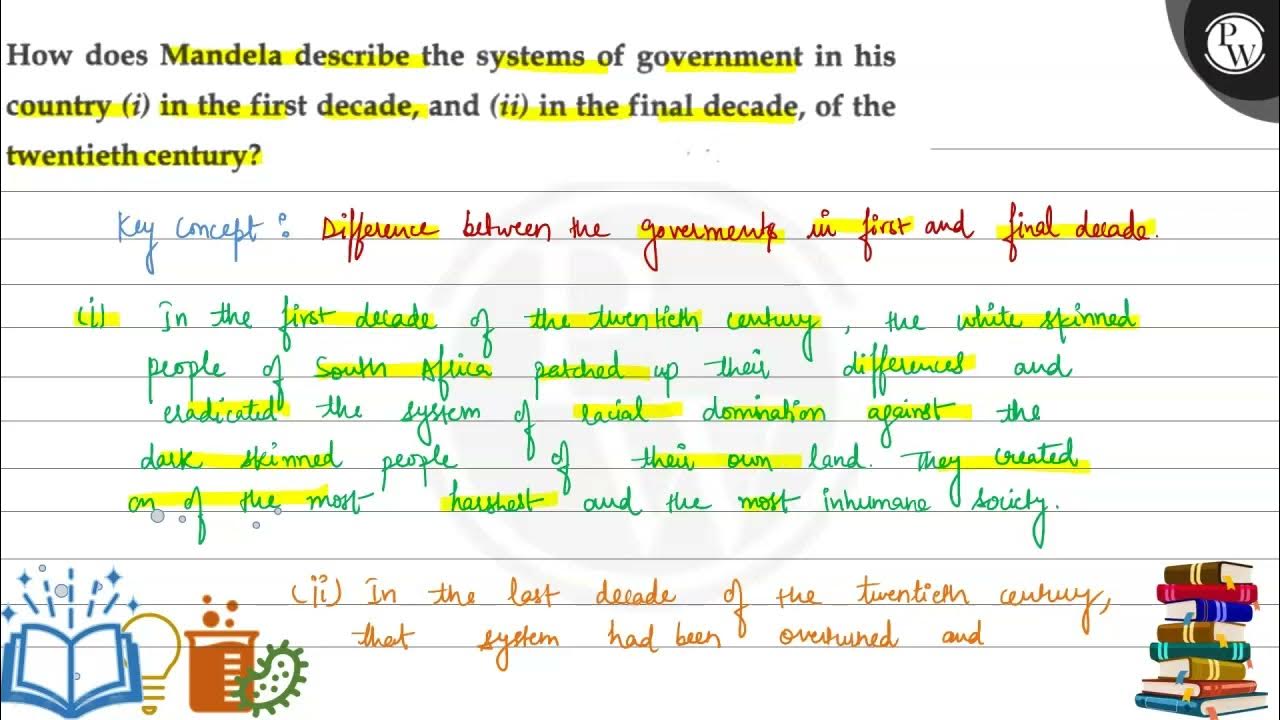 How does Mandela describe the systems of government in his
country (i) in the first decade, and (ii) in the final decade, of the
twentieth century?
PW
Key Concept : Difference between the goverments in first and final decade.
(i) In the first decade of the twentieth century, the white skinned
people of South Africa patched up their differences and
eradicated the system of racial domination against the
dark skinned people of their own land. They created
on of the most harshest and the most inhumane society.
(ii) In the last decade of the twentieth century,
that system had been overturned and